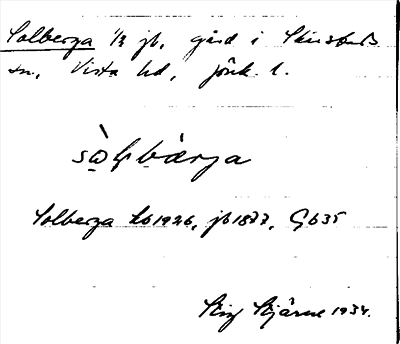 Solberga 1/2 jb, gård i Skärstads
sn, Vista hd, Jönk. l.
sò̤ḷbàrja
Solberga Lb 1926, jb 1877, Gb 35
Stig Bjärne 1934.